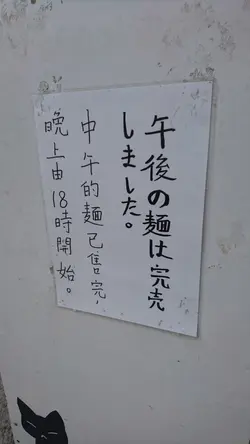 午後の麺は完売
しました。
中午的麵已售完，
晚上由18時開始。